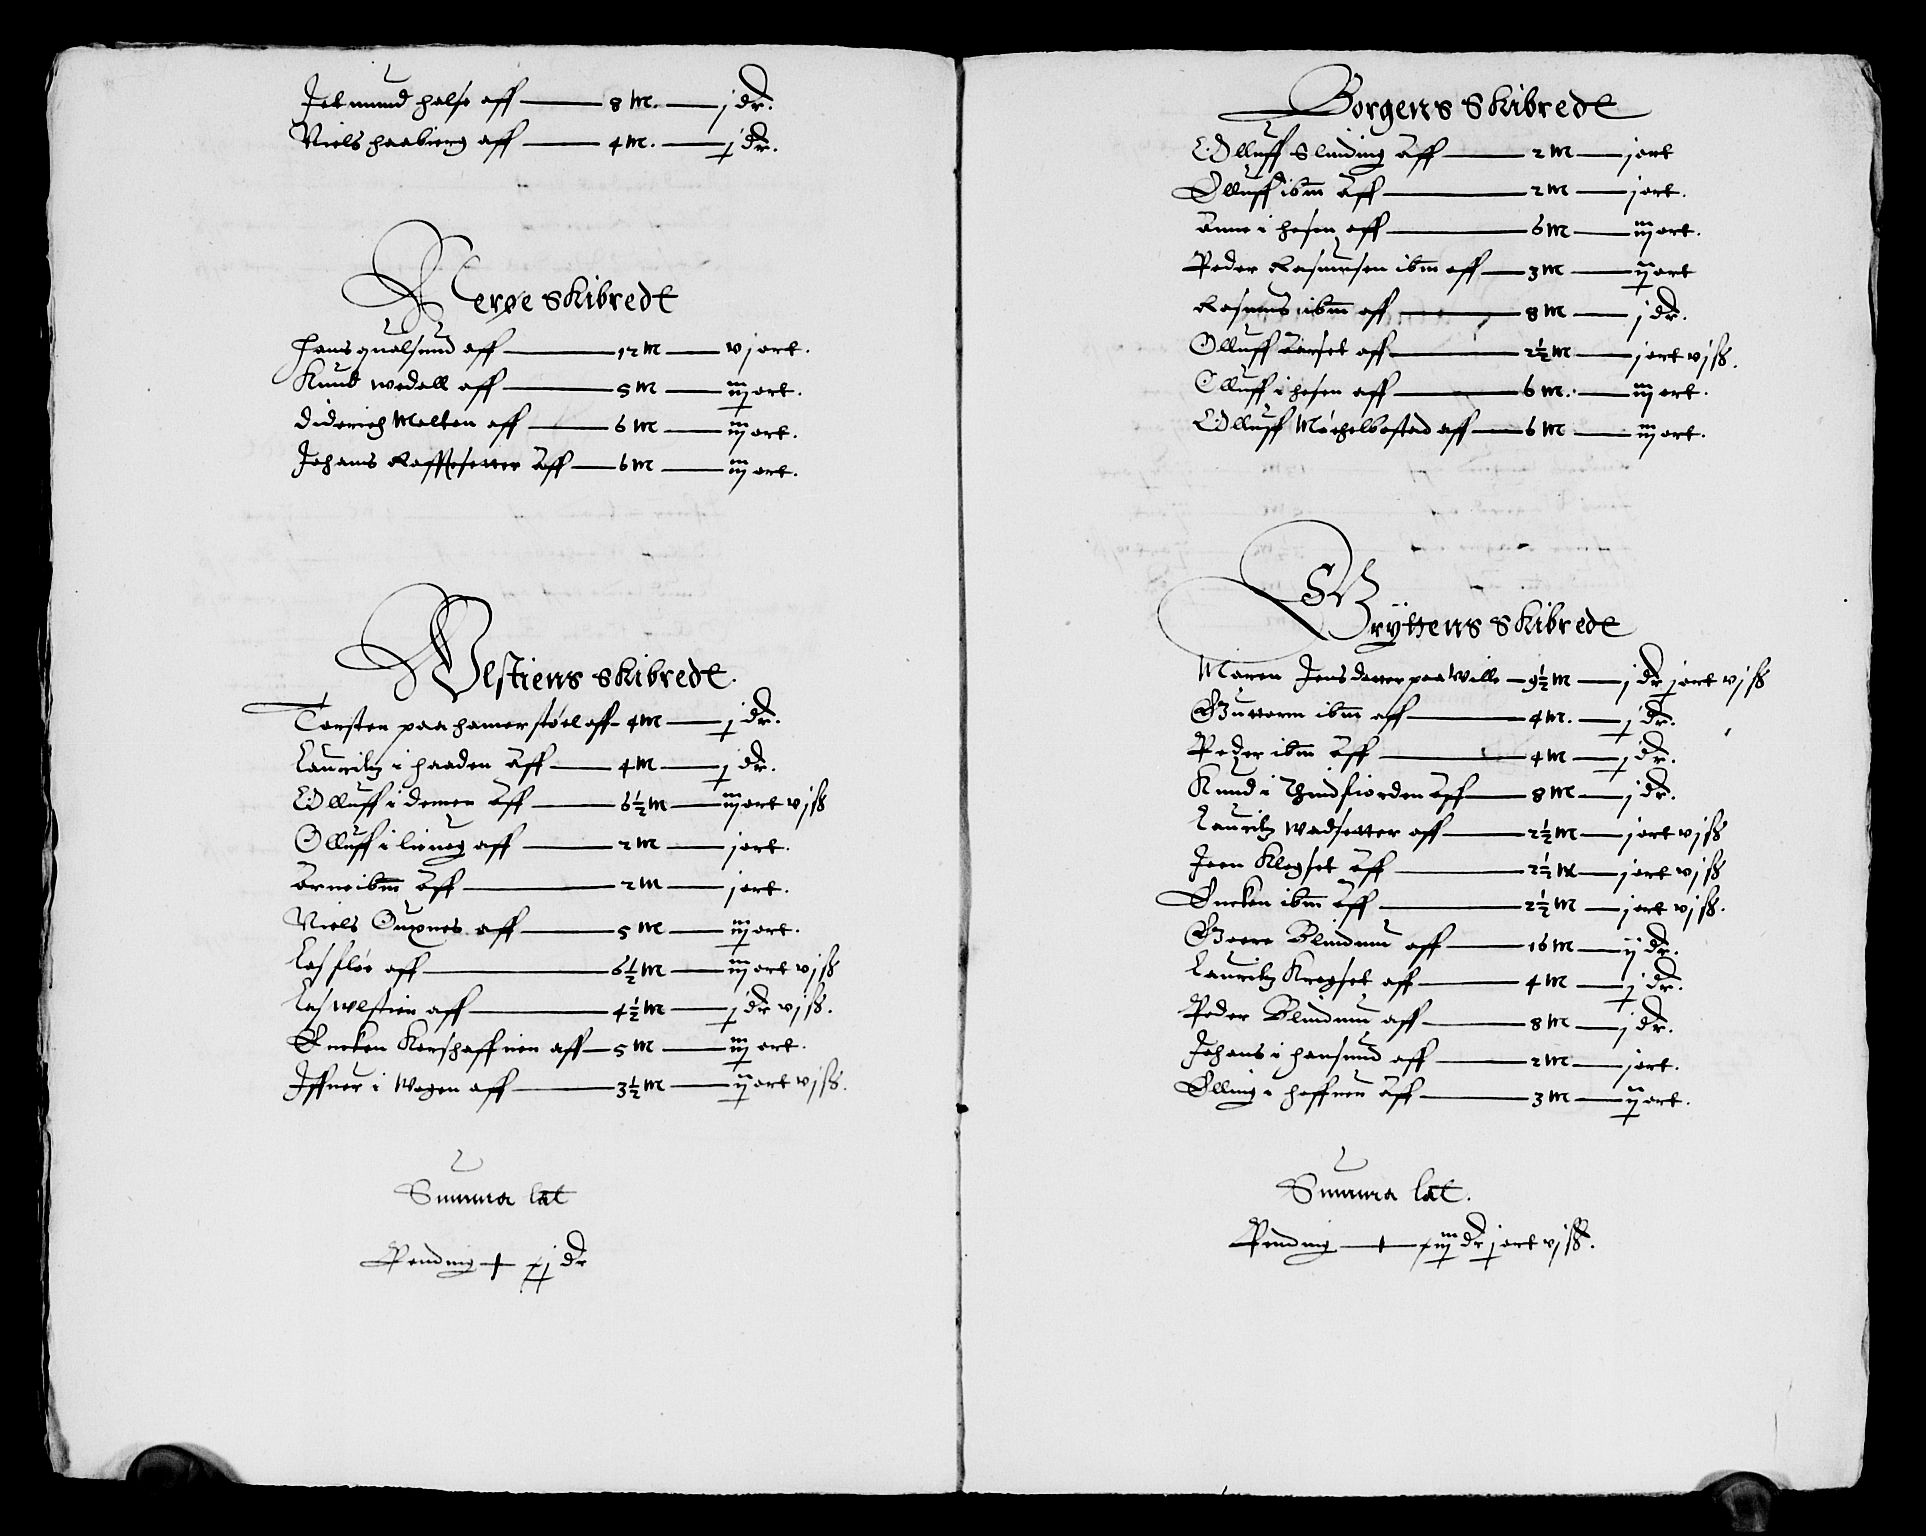 Jetmund halse aff — 8 M. — j dr.
Niels haabierg aff — 4 M. — j dr.
Herøe skibredt
Hans qualsund aff — 12 M — vj ort.
Knud wedell aff — 5 M — iiij ort.
Diderich Molten aff — 6 M — iij ort.
Johans Raffsetter aff — 6 M — iij ort.
Vlstiens skibredt.
Torsten paa hamerstøel aff — 4 M — j dr.
Lauritz i haaden aff — 4 M — j dr.
Olluff i demen aff — 6½ M — iij ort vj ß
Olluff i lieueg aff — 2 M — j ort.
Arne ibm aff — 2 M — j ort.
Niels Ouxnes aff — 5 M — iij ort.
Las fløe aff — 6½ M — iij ort vj ß
Las Wlstien aff — 4½ M — j dr vj ß.
Encken Korshaffnen aff — 5 M — iij ort.
Iffuer i Wogen aff — 3½ M — ij ort vj ß.
Summa lat
Pending + xj dr
Borgens skibredt
Olluff Slinding aff — 2 M — j ort
Olluff ibm aff — 2 M — j ort.
Anne i hesen aff — 6 M — iij ort.
Peder Rasmusen ibm aff — 3 M — ij ort
Rasmus ibm aff — 8 M — j dr.
Olluff Aarset aff — 2½ M — j ort vj ß.
Olluff i hesen aff — 6 M. — iij ort.
Olluff Møchelbostad aff — 6 M — iij ort.
Gryttens skibredt
Maren Jensdatter paa Wille — 9½ M — j dr j ort vj ß
Guttorm ibm aff — 4 M. — j dr.
Peder ibm aff — 4 M — j dr.
Knud i Thindfiorden aff — 8 M — j dr.
Lauritz Wadsetter aff — 2½ M — j ort vj ß
Joen Klogset aff — 2½ M — j ort vj ß
Encken ibm aff — 2½ M — j ort vj ß.
Goere Blindum aff — 16 M — ij dr.
Lauritz Krogset aff — 4 M — j dr.
Peder Blindum aff — 8 M — j dr.
Johans i hansund aff — 2 M — j ort.
Elling i haffnen aff — 3 M — ij ort.
Summa lat.
Pending — + — xiij dr j ort vj ß.